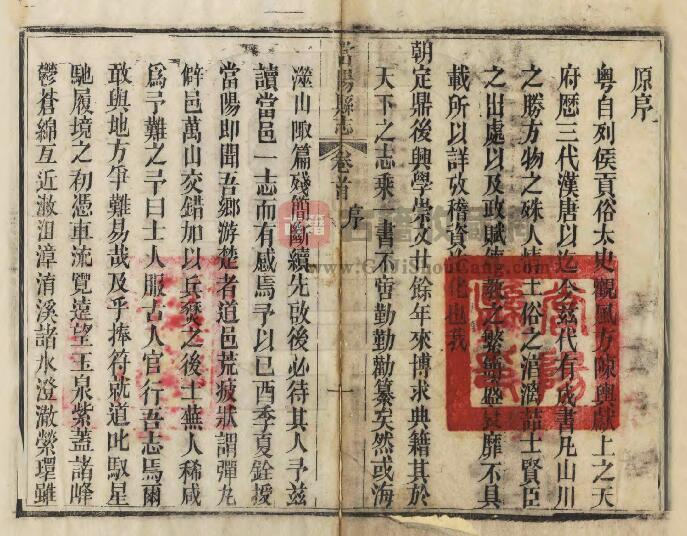 原序
粤自列侯貢俗太史觀風方陳輿獻上之天
府歷三代漢唐以迄今茲代有成書凡山川
之勝方物之殊人情土俗之淯漓喆士賢臣
之出處以及政賦使教之繁簡盛衰靡不具
載所以詳攷稽資治化也我
朝定鼎後興學崇文廿餘年來博求典籍其於
天下之志乘一書不啻勤勤勸纂矣然或海
當陽縣志 卷首 序 一
澨山陬篇殘簡斷續先啟後必待其人予茲
讀當邑一志而有感焉予以己酉季夏銓授
當陽即聞吾鄉游楚者道邑荒疲狀謂彈丸
僻邑萬山交錯加以兵燹之後土蕪人稀咸
爲予難之予曰士人服古人官行吾志焉爾
敢與地方爭難易哉及乎捧符就道叱馭星
馳履境之初憑車流覽遠望玉泉紫蓋諸峰
鬱蒼綿亙近漱沮漳淯溪諸水澄澈縈環雖
古籍收藏網
www.GuJiShouCang.com